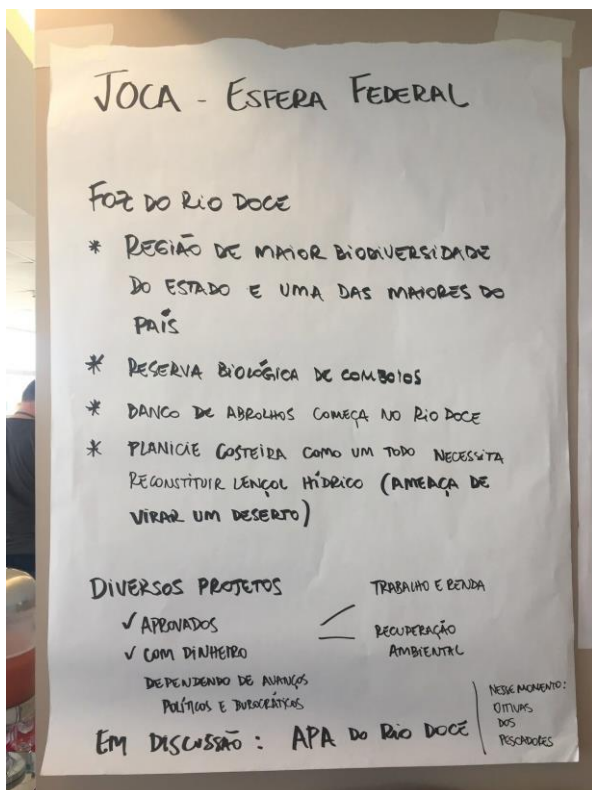 JOCA - ESFERA FEDERAL
FOZ DO RIO DOCE
* REGIÃO DE MAIOR BIODIVERSIDADE
DO ESTADO E UMA DAS MAIORES DO
PAÍS
* RESERVA BIOLÓGICA DE COMBOIOS
* BANCO DE ABROLHOS COMEÇA NO RIO DOCE
* PLANICIE COSTEIRA COMO UM TODO NECESSITA
RECONSTITUIR LENÇOL HÍDRICO (AMEAÇA DE
VIRAR UM DESERTO)
DIVERSOS PROJETOS
✓ APROVADOS
✓ COM DINHEIRO
DEPENDENDO DE AVANÇOS
POLÍTICOS E BUROCRÁTICOS
TRABALHO E RENDA
RECUPERAÇÃO
AMBIENTAL
EM DISCUSSÃO: APA DO RIO DOCE
NESSE MOMENTO:
OITIVAS
DOS
PESCADORES